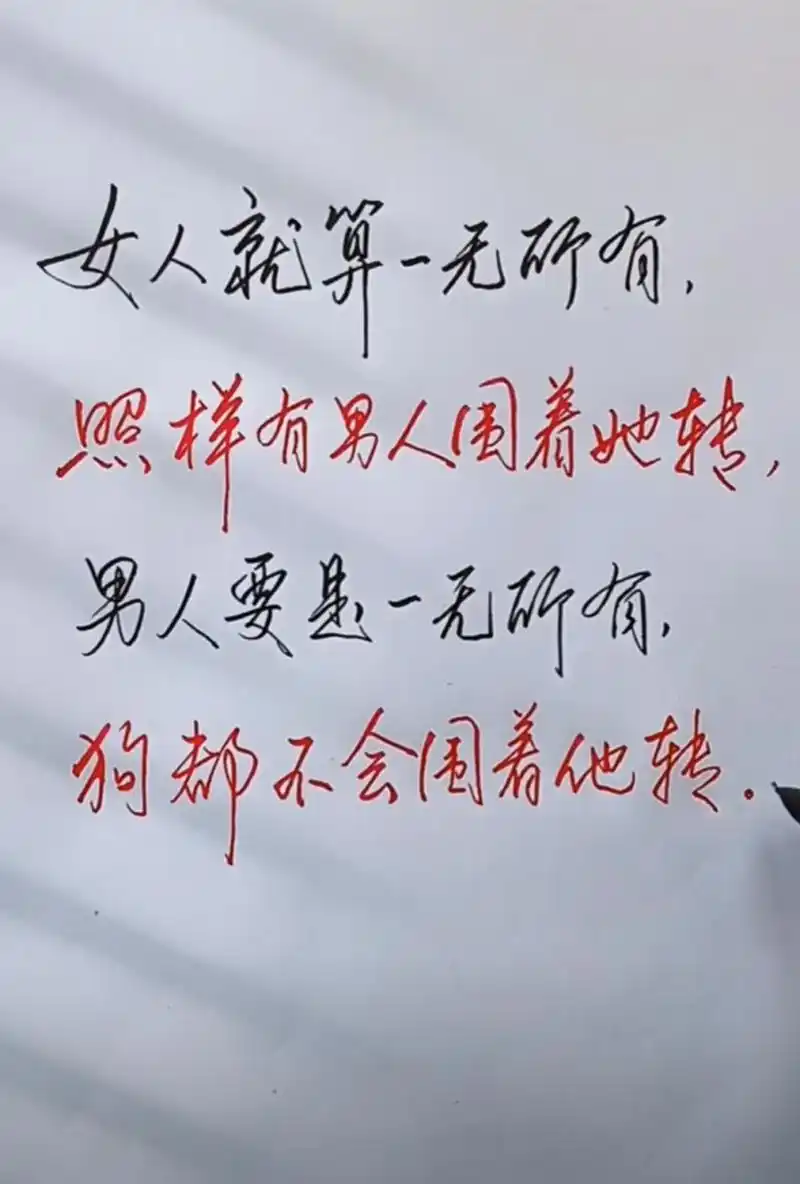 女人就算一无所有，
照样有男人围着她转，
男人要是一无所有，
狗都不会围着他转．